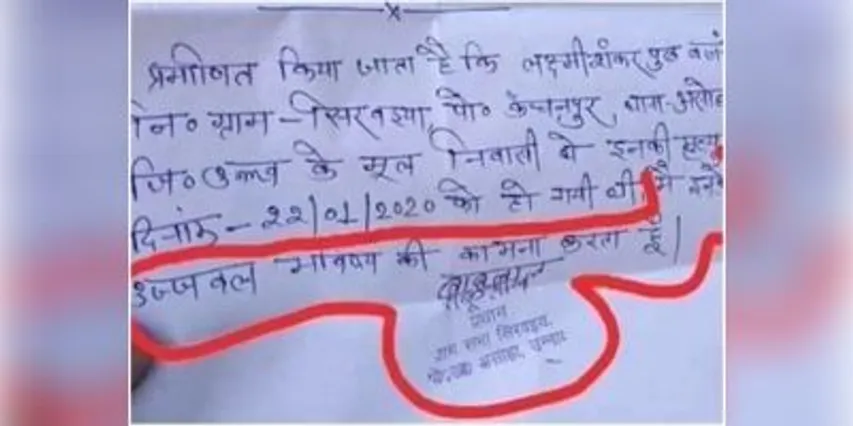 x
प्रमाणित किया जाता है कि लक्ष्मीशंकर पुत्र
नि० ग्राम - सिरवइया, पो० कंचनपुर, थाना-
जि० उन्नाव के मूल निवासी थे इनकी मृत्यु
दिनांक - 22/01/2020 को हो गयी थी, मैं इनके
उज्जवल भविष्य की कामना करता हूँ।
प्रधान
ग्राम सभा सिरवइया,
असोहा, उन्नाव